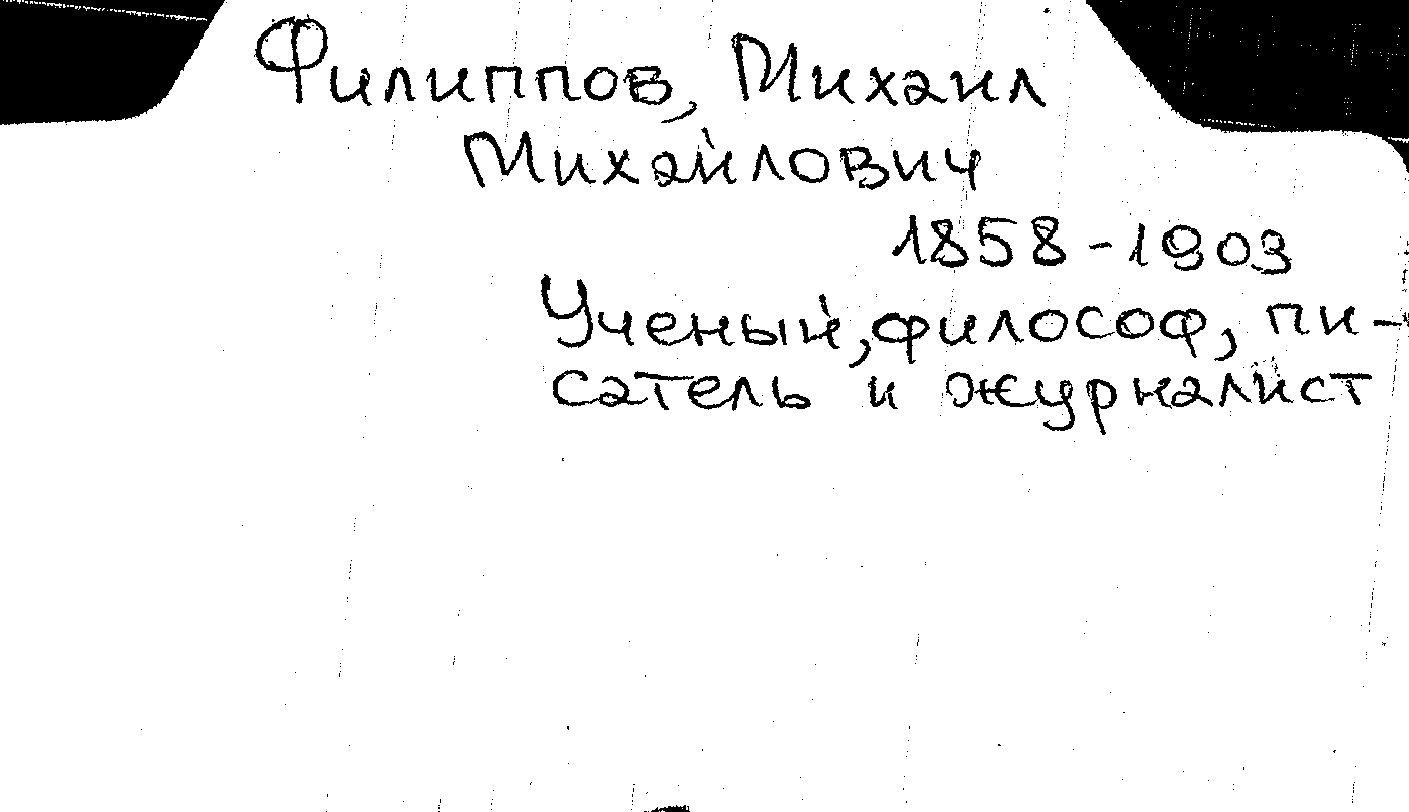 Филиппов, Михаил
Михайлович
1858-1903
Ученый, философ, пи-
сатель и журналист